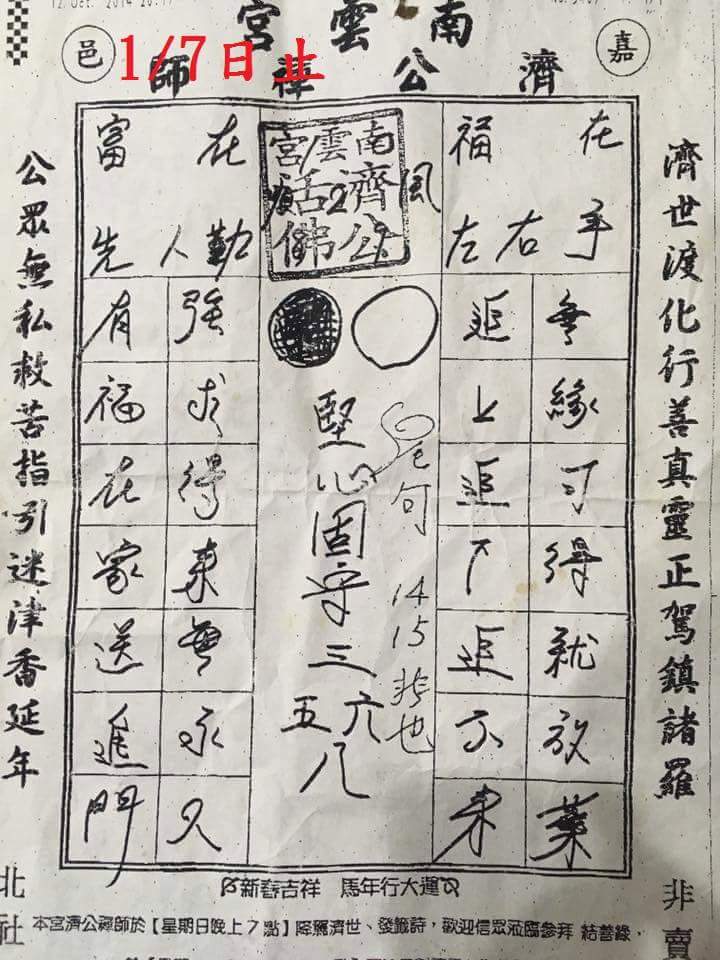 12. Oct. 2014 20:17
南雲宮
嘉邑
濟公禪師
1/7日止
濟世渡化行善真靈正駕鎮諸羅
公眾無私救苦指引迷津香延年
福在
左右手
富在
先人勤
南雲宮
濟公
活佛
風
無緣可得就放棄
追上追下追不來
堅心固守三
五六
八
句
14
15 非也
強求得來無永久
有福在家送進門
新春吉祥 馬年行大運
本宮濟公禪師於【星期日晚上7點】降駕濟世、發籤詩,歡迎信眾蒞臨參拜 結善緣,
非賣
北社